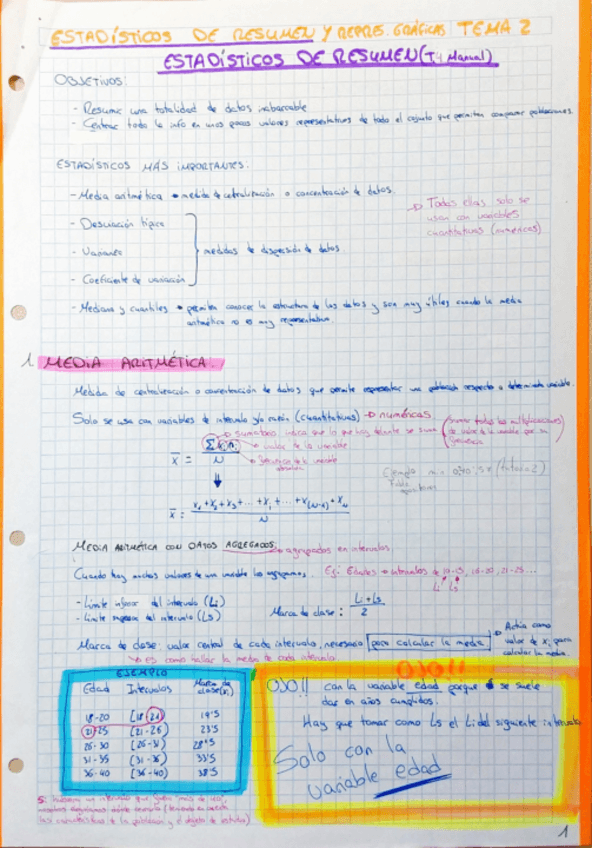 ESTADÍSTICOS DE RESUMEN Y REPRES. GRÁFICAS TEMA 2
ESTADÍSTICOS DE RESUMEN (T4 Manual)
OBJETIVOS:
- Resumir una totalidad de datos inabarcable
- Centrar toda la info en unos pocos valores representativos de todo el conjunto que permiten comparar poblaciones.
ESTADÍSTICOS MÁS IMPORTANTES:
- Media aritmética → medida de centralización o concentración de datos.
→ Todas ellas solo se
usan con variables
cuantitativas (numéricas)
- Desviación típica
- Varianza
- Coeficiente de variación
medidas de dispersión de datos
- Mediana y cuantiles → permiten conocer la estructura de los datos y son muy útiles cuando la media
aritmética no es muy representativa.
1. MEDIA ARITMÉTICA.
Medida de centralización o concentración de datos que permite representar una población respecto a determinada variable.
Solo se usa con variables de intervalo y/o razón (cuantitativas) → numéricas.
→ sumatorio, indica que lo que hay delante se suma (sumar todas las multiplicaciones
de valor de la variable por su
frecuencia
→ valor de la variable
→ frecuencia de la variable
absoluta
x̄ = Σxᵢnᵢ / N
Ejemplo
x̄ = x₁+x₂+x₃+...+xᵢ+...+x(N-1)+x_N / N
MEDIA ARITMÉTICA CON DATOS AGREGADOS: → agrupados en intervalos
Cuando hay muchos valores de una variable los agrupamos. Ej: Edades → intervalos de 10-15, 16-20, 21-25...
Li Ls
- Límite inferior del intervalo (Li)
- Límite superior del intervalo (Ls)
Marca de clase: Li+Ls / 2
Marca de clase: valor central de cada intervalo, necesario para calcular la media
→ Actúa como
valor de xᵢ para
calcular la media.
→ es como hallar la media de cada intervalo
EJEMPLO
Edad Intervalos Marca de clase (xᵢ)
18-20 [18-21) 19'5
21-25 [21-26) 23'5
26-30 [26-31) 28'5
31-35 [31-36) 33'5
36-40 [36-40) 38'5
OJO!!
OJO!! con la variable edad porque se suele
dar en años cumplidos.
Hay que tomar como Ls el Li del siguiente intervalo
Solo con la
variable edad
las características de la población y el objeto de estudio)
1